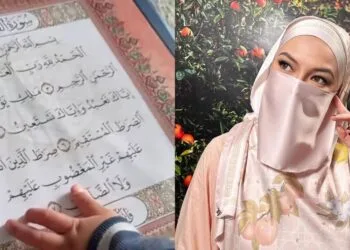 سُورَةُ
بِسْمِ اللَّهِ الرَّحْمَٰنِ
الْحَمْدُ لِلَّهِ رَبِّ
الرَّحْمَٰنِ الرَّحِيمِ مَالِكِ يَوْمِ
إِيَّاكَ نَعْبُدُ وَإِيَّاكَ نَسْتَعِينُ
الصِّرَاطَ الْمُسْتَقِيمَ صِرَاطَ الَّذِينَ
عَلَيْهِمْ غَيْرِ الْمَغْضُوبِ عَلَيْهِمْ
وَلَا الضَّالِّينَ